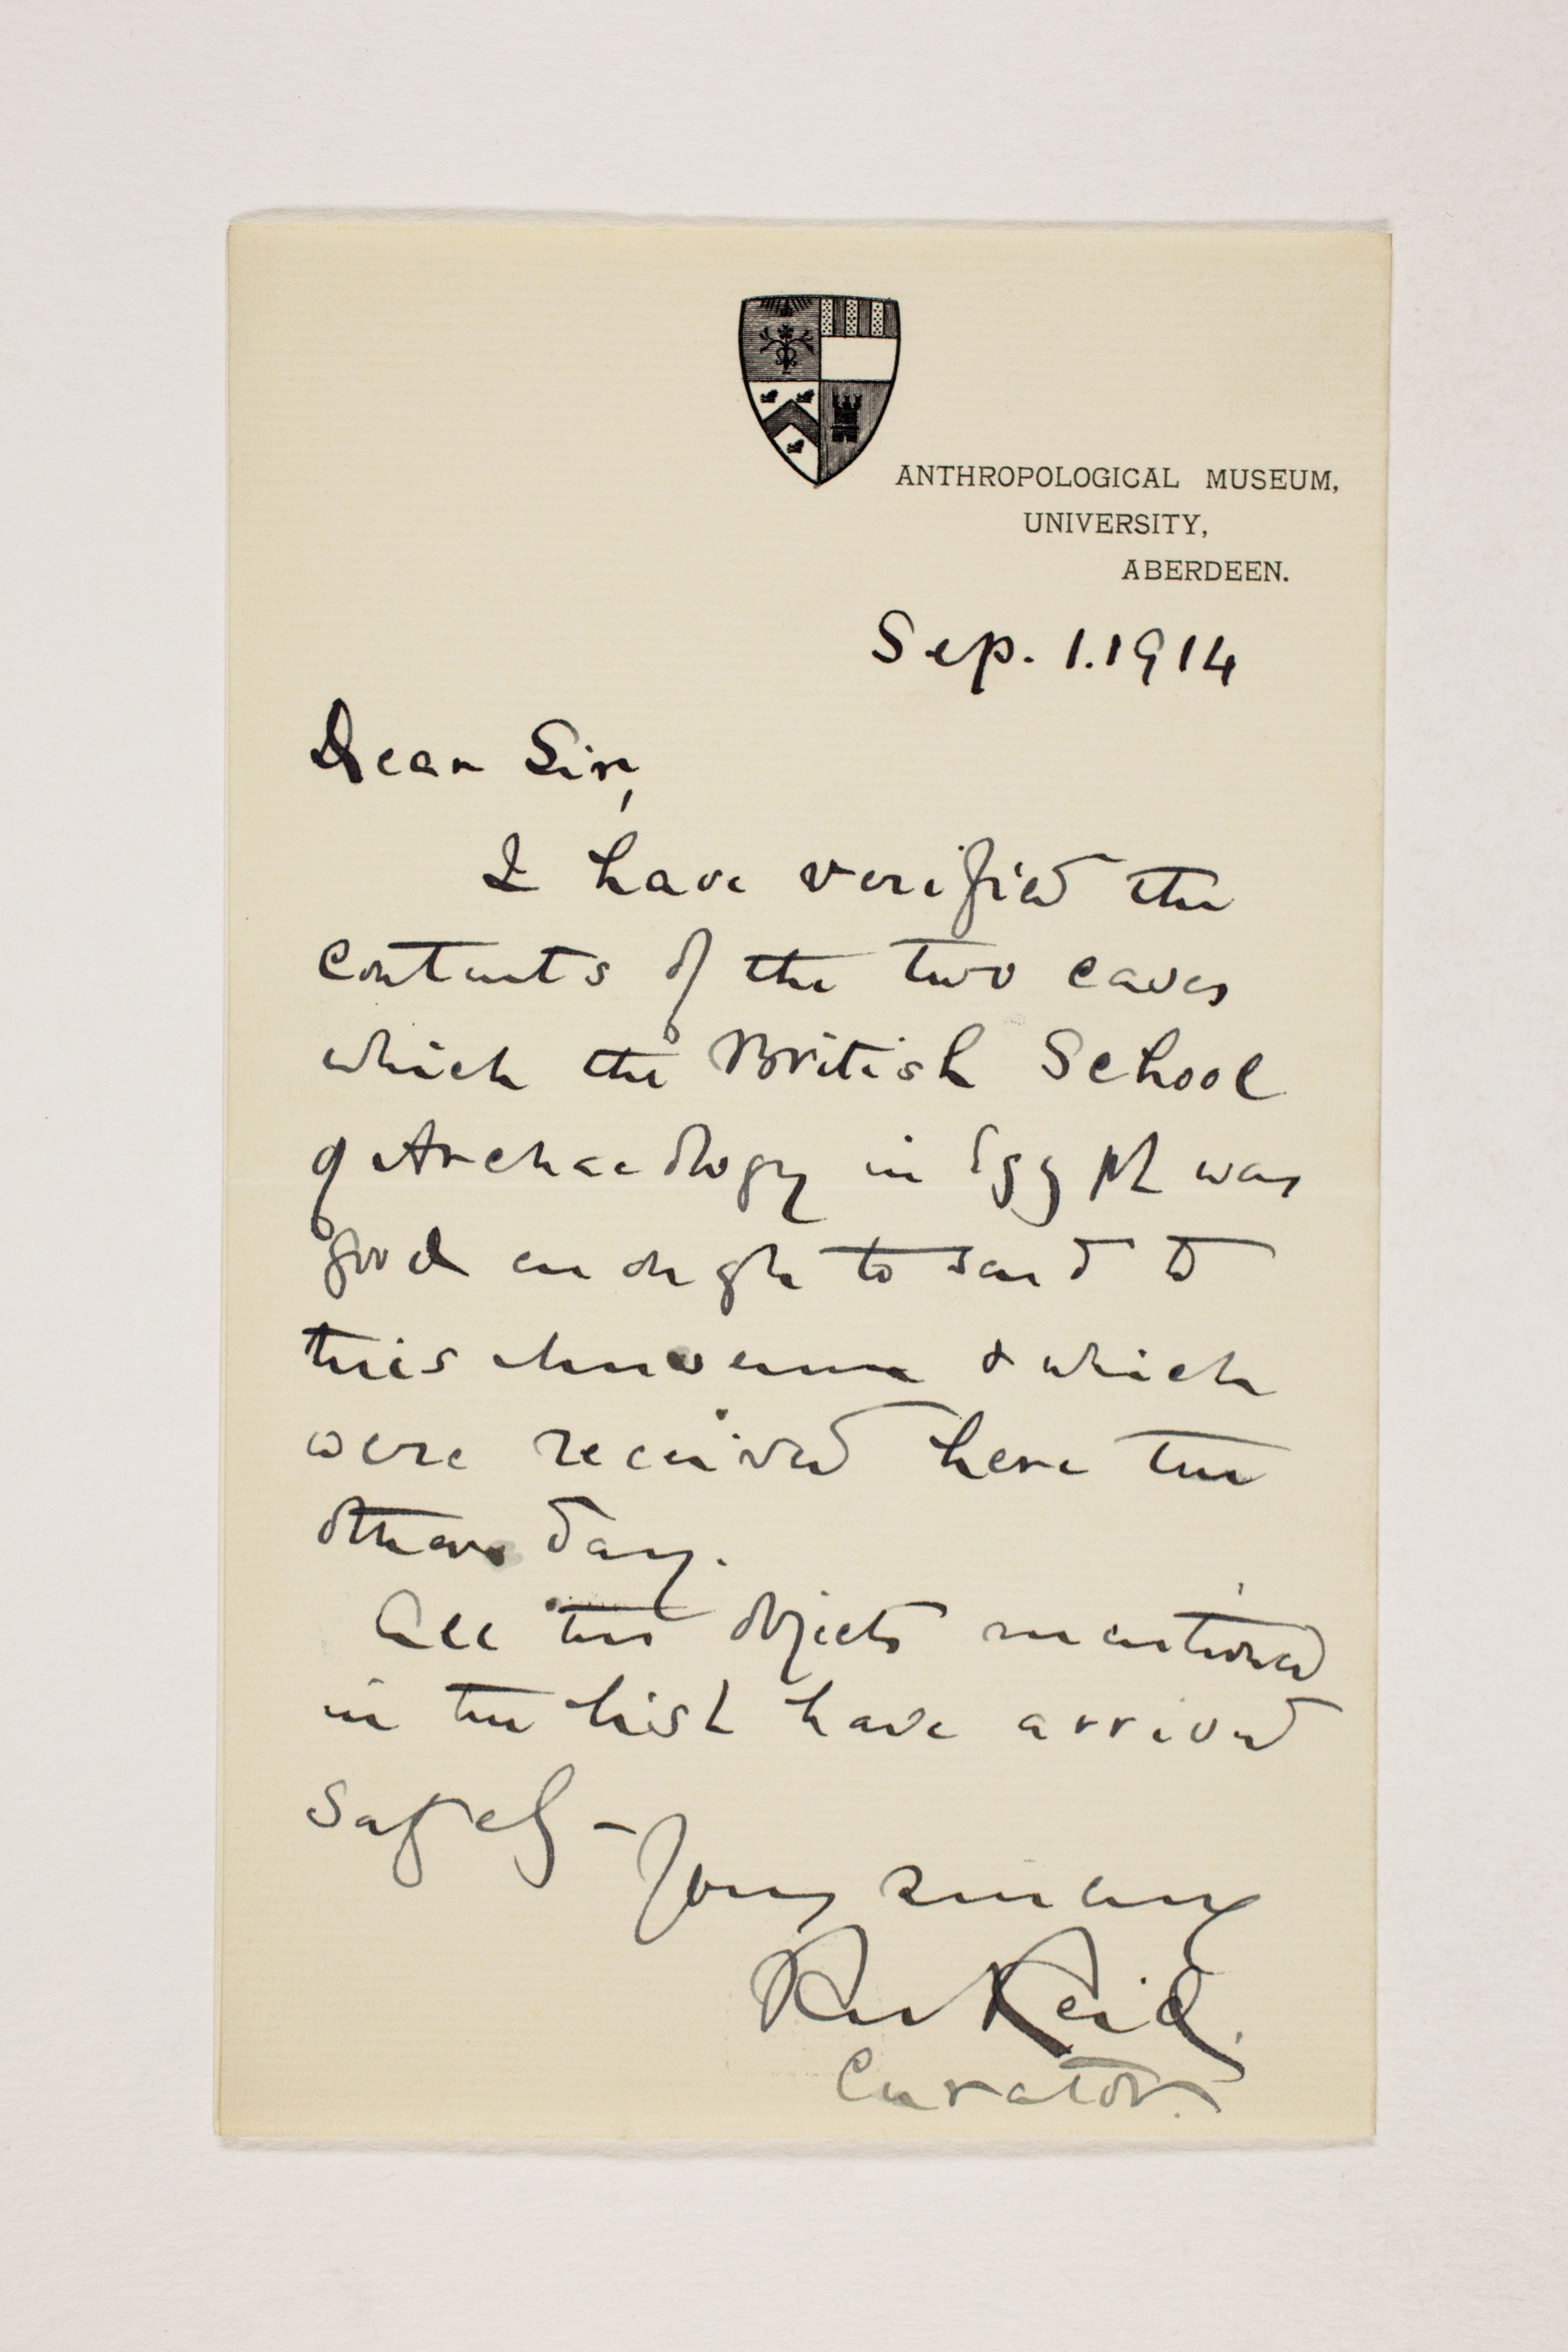 ANTHROPOLOGICAL MUSEUM,
UNIVERSITY,
ABERDEEN.
Sep. 1. 1914
Dear Sir,
I have verified the
contents of the two cases
which the British School
of Archaeology in Egypt was
good enough to send to
this Museum & which
were received here the
other day.
All the objects mentioned
in the list have arrived
safely –
Yours sincerely
Reid.
Curator.